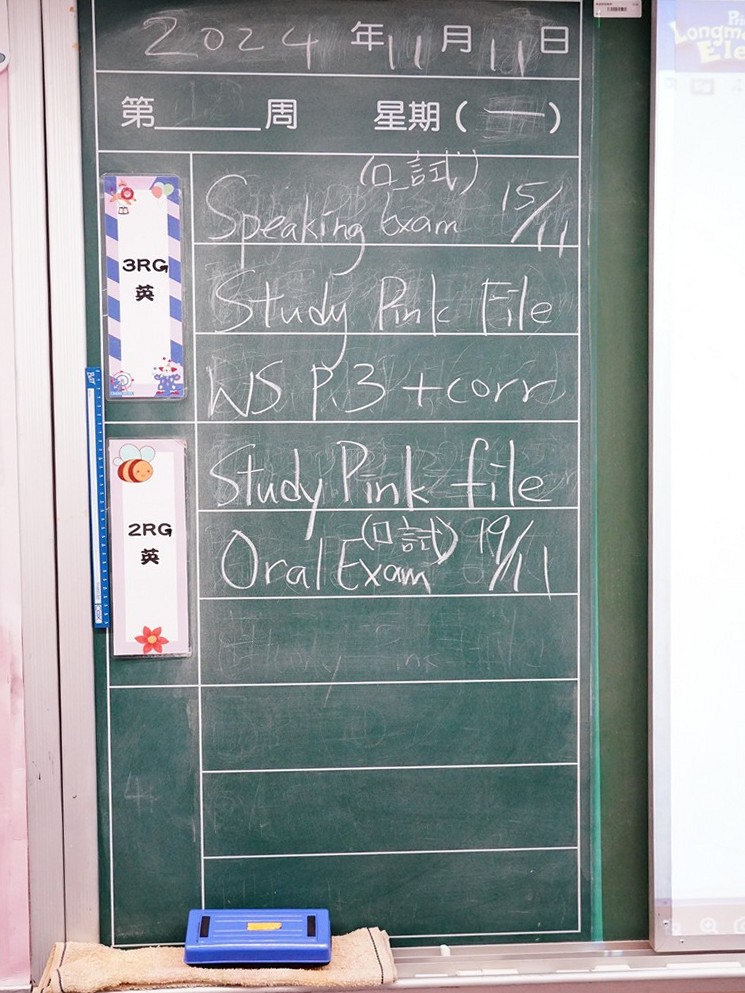 2024 年 11 月 11 日
第______周 星期（一）
3RG
英
(口試)
Speaking Exam 15/11
Study Pink File
WS P.3 + corr
2RG
英
Study Pink file
(口試)
Oral Exam 19/11